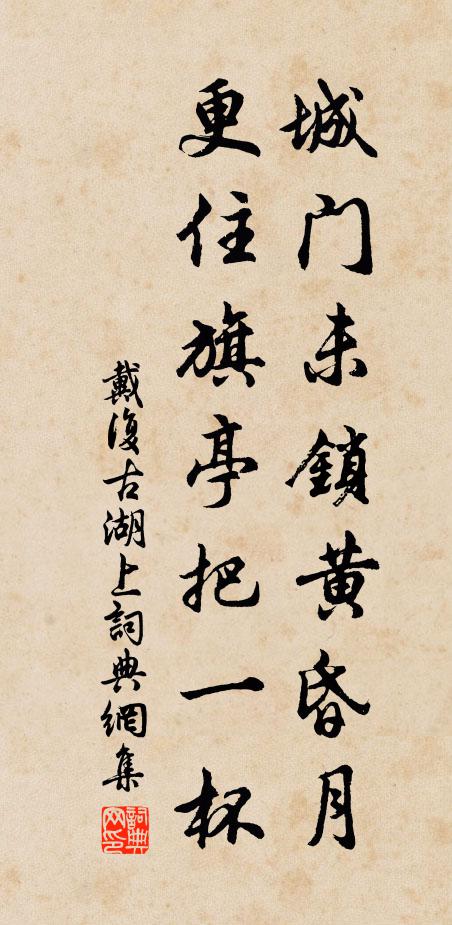 城門未鎖黄昏月
更住旗亭把一杯
戴復古湖上詞典網集
詞典网印